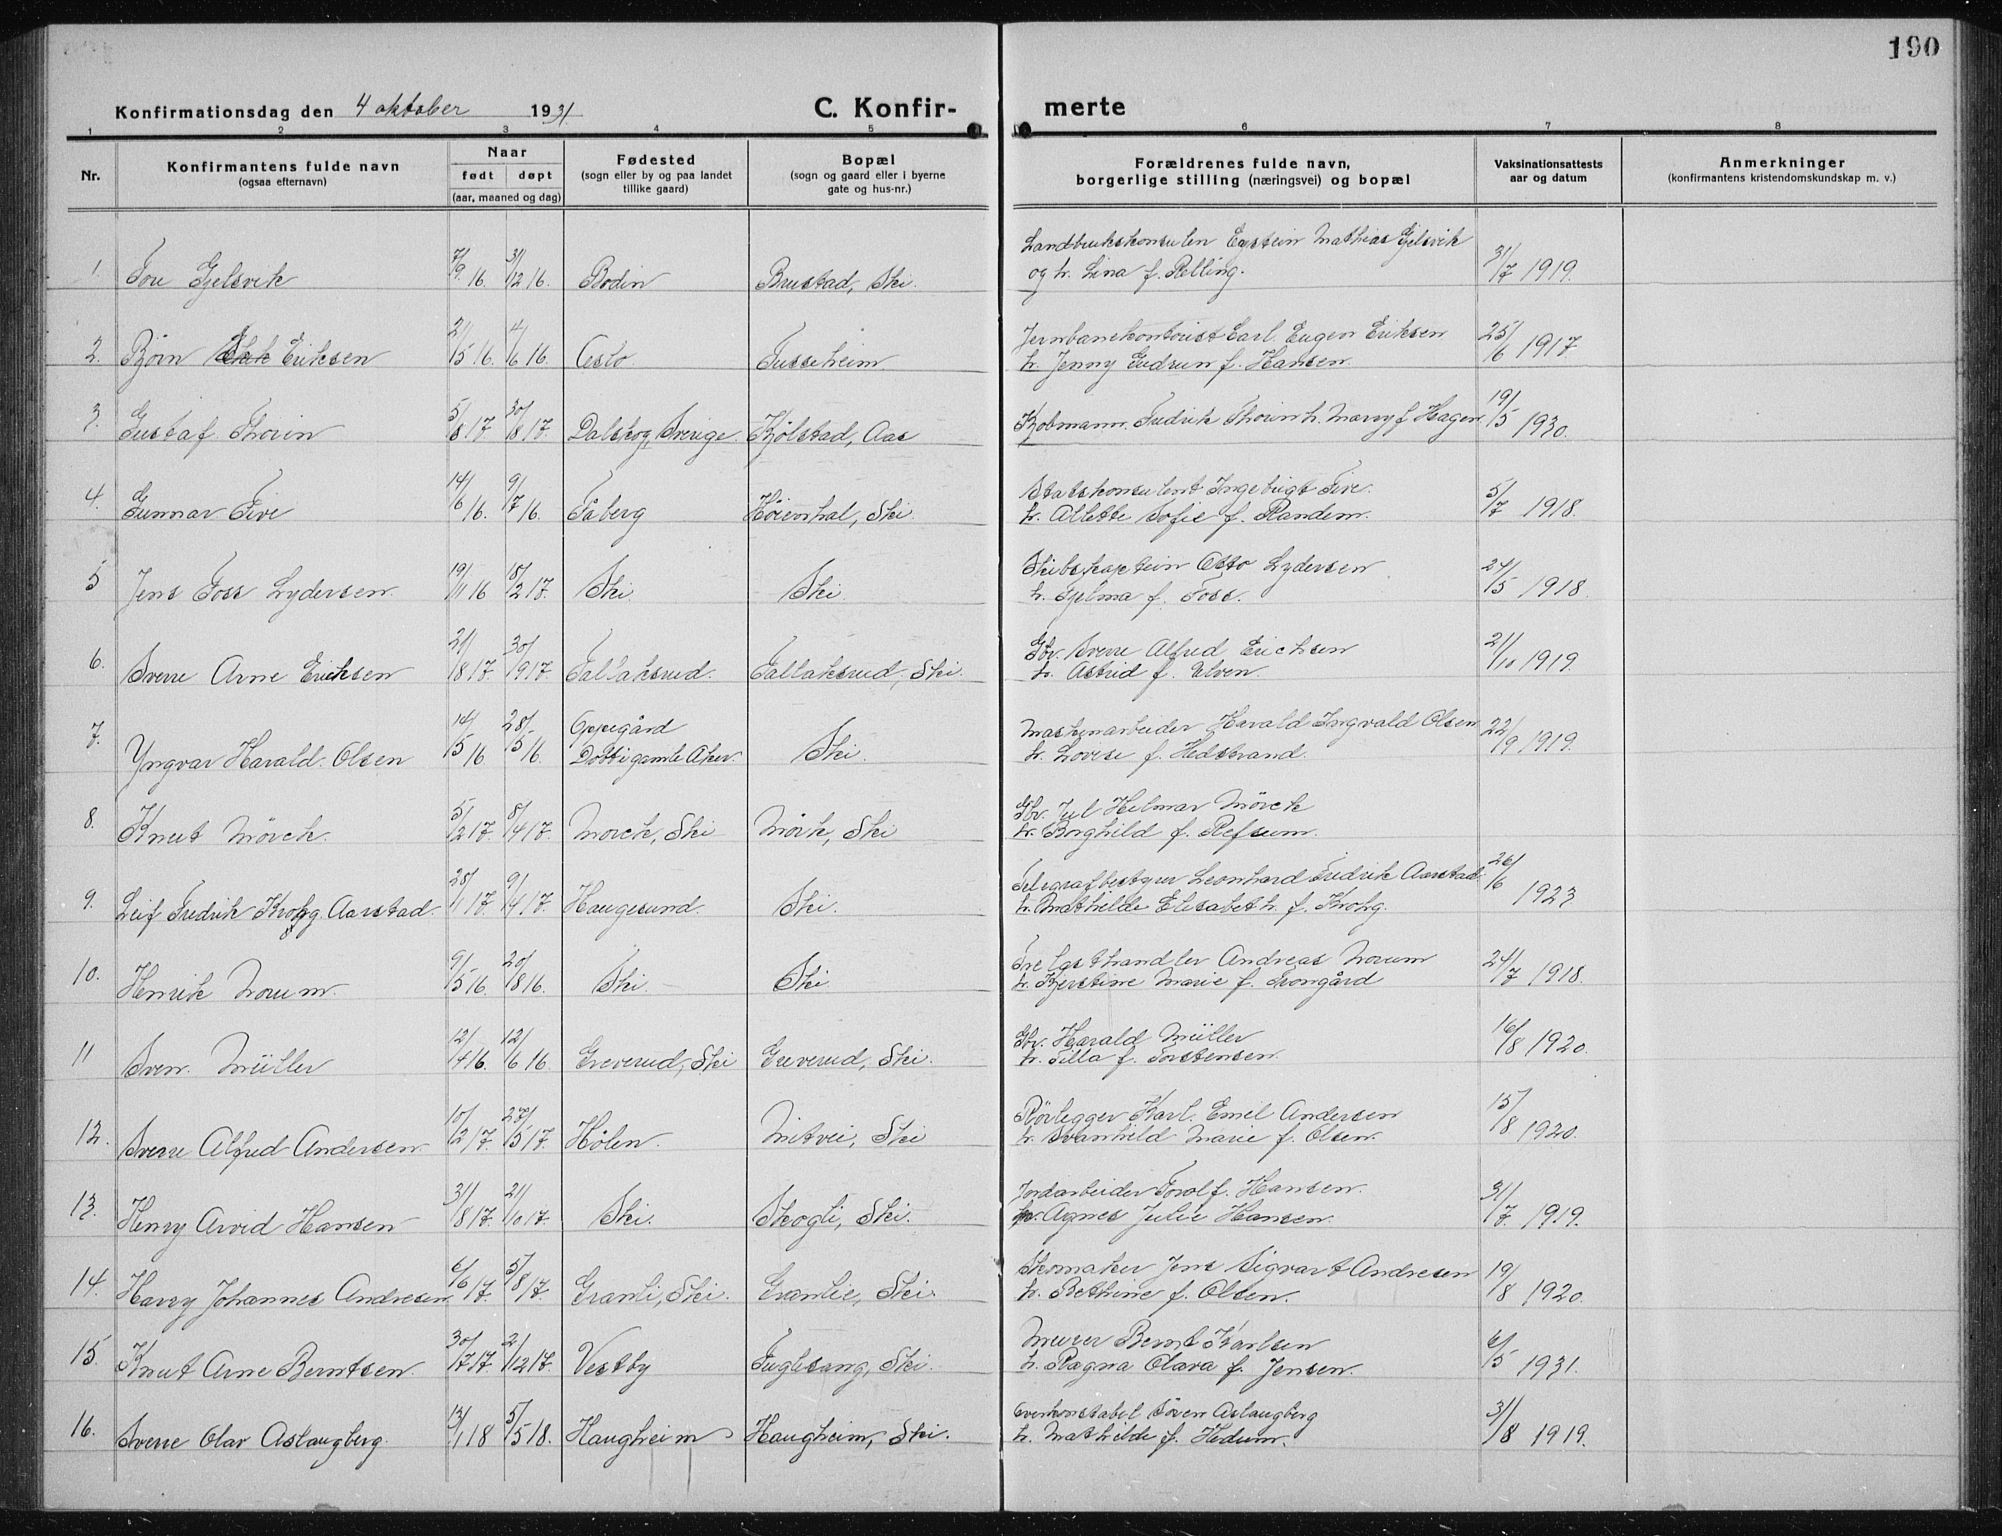 190
Konfirmationsdag den 4 oktober 1931
C. Konfir-
merte
1 2 3 4 5 6 7 8
Nr.
Konfirmantens fulde navn
(ogsaa efternavn)
Naar
født døpt
(aar, maaned og dag)
Fødested
(sogn eller by og paa landet
tillike gaard)
Bopæl
(sogn og gaard eller i byerne
gate og hus-nr.)
Forældrenes fulde navn,
borgerlige stilling (næringsvei) og bopæl
Vaksinationsattests
aar og datum
Anmerkninger
(konfirmantens kristendomskundskap m. v.)
Landbrukskonsulen Eystein Mathias Gjelsvik
1. Tore Gjelsvik 7/9 16. 31/12 16. Bodin Brustad, Ski. og h. Lina f. Relling. 31/7 1919.
Jernbanekontorist Carl Eugen Eriksen
2. Bjørn Eriksen 21/5 16. 4/6 16. Oslo. Tusseheim h. Jenny Gudrun f. Hansen. 25/6 1917
3. Gustaf Thorin 5/8 17 30/8 17. Dalskog, Sverige. Kjølstad, Aas Kjøbmann Fredrik Thorin h. Marry f. Hagen. 19/5 1930.
Statskonsulent Ingebrigt Five.
4. Gunnar Five 14/6 16. 9/7 16. Fåberg Høienhal, Ski. h. Allette Sofie f. Randem. 5/7 1918.
Skibskaptein Otto Lydersen
5 Jens Foss Lydersen. 19/11 16 18/2 17. Ski. Ski. h. Hjelma f. Foss. 24/5 1918.
Gbr. Sverre Alfred Erichsen
6. Sverre Arne Eriksen 21/8 17. 30/9 17. Tallaksrud. Tallaksrud, Ski. h. Astrid f. Elven. 21/10 1919.
Oppegård Maskinarbeider Harald Ingvald Olsen
7. Yngvar Harald Olsen 14/5 16 28/5 16. Døbt i gamle Aker. Ski. h. Lovise f. Hedstrand. 22/9 1919.
Gbr. Jul Hilmar Mörck
8. Knut Mörck. 5/2 17. 8/4 17. Morck, Ski Mörk, Ski h. Borghild f. Refsum.
Telegrafbestyrer Leonhard Fredrik Aarstad.
9. Leif Fredrik Krohg Aarstad. 28/1 17. 9/4 17. Haugesund. Ski. h. Mathilde Elisabeth f. Krohg. 26/6 1923
Trelasthandler Andreas Norum
10. Henrik Norum. 9/5 16. 20/8 16. Ski. Ski h. Kjerstine Marie f. Trongård 24/7 1918.
Gbr. Harald Müller
11 Sven Müller 12/4 16. 12/6 16 Greverud, Ski Greverud, Ski. h. Tilla f. Torstensen. 16/8 1920.
Rørlegger Karl Emil Andersen
12. Sverre Alfred Andersen. 10/2 17. 27/5 17. Hølen. Mitvei, Ski h. Svanhild Marie f. Olsen. 15/8 1920.
Jordarbeider Torolf Hansen.
13. Henry Arvid Hansen 31/8 17. 21/10 17. Ski. Skogli, Ski. h. Agnes Julie Hansen. 31/7 1919.
Skomaker Jens Sigvart Andresen
14. Harry Johannes Andresen 6/6 17. 5/8 17. Granli, Ski. Granlie, Ski. h. Bethine f. Olsen. 19/8 1920.
Murer Bernt Karlsen
15. Knut Arne Berntsen. 30/7 17. 2/12 17. Vestby Fuglesang, Ski. h. Ragna Olava f. Jensen. 6/5 1931.
Overkonstabel Sören Aslaugberg
16. Sverre Olav Aslaugberg. 13/1 18 5/5 18. Haugheim Haugheim, Ski. h. Mathilde f. Hedum. 31/8 1919.